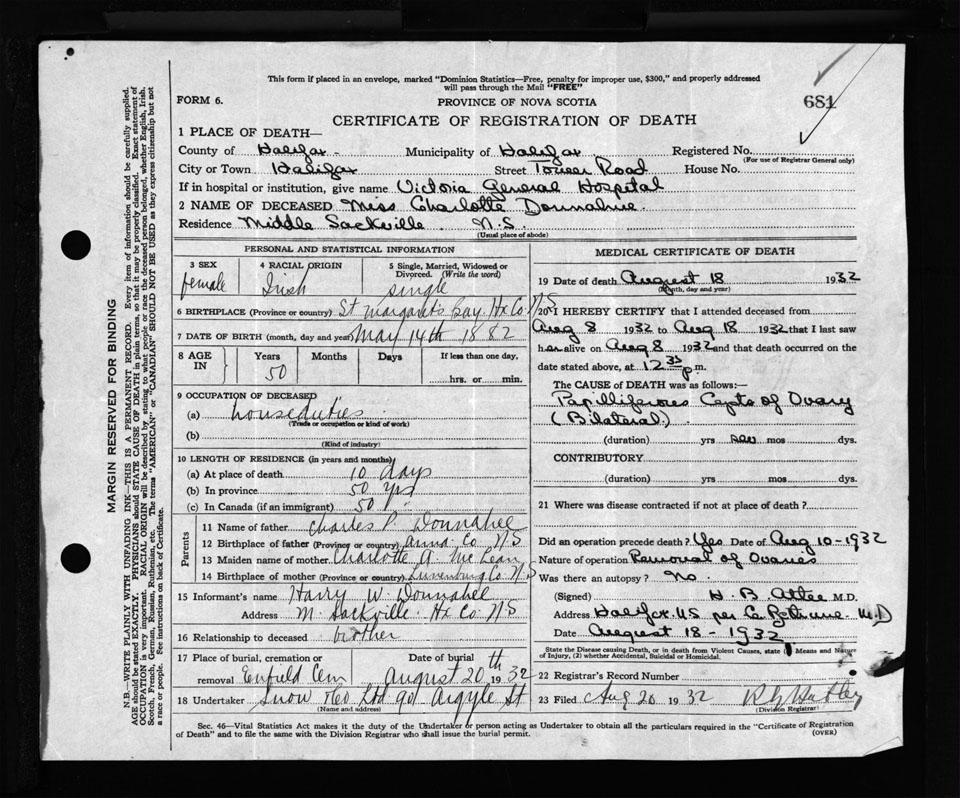 This form if placed in an envelope, marked "Dominion Statistics—Free, penalty for improper use, $300," and properly addressed
will pass through the Mail "FREE"
FORM 6.
PROVINCE OF NOVA SCOTIA
681
CERTIFICATE OF REGISTRATION OF DEATH
1 PLACE OF DEATH—
County of Halifax Municipality of Halifax Registered No.
(For use of Registrar General only)
City or Town Halifax Street Tower Road House No.
If in hospital or institution, give name Victoria General Hospital
2 NAME OF DECEASED Miss Charlotte Donnahue
Residence Middle Sackville N.S.
(Usual place of abode)
PERSONAL AND STATISTICAL INFORMATION
3 SEX
female
4 RACIAL ORIGIN
Irish
5 Single, Married, Widowed or
Divorced. (Write the word)
single
6 BIRTHPLACE (Province or country) St Margarets Bay, Hx Co. N S
7 DATE OF BIRTH (month, day and year) May 14th 1882
8 AGE
IN
Years
50
Months
Days
If less than one day,
hrs. or min.
9 OCCUPATION OF DECEASED
(a) houseduties
(Trade or occupation or kind of work)
(b)
(Kind of industry)
10 LENGTH OF RESIDENCE (in years and months)
(a) At place of death 10 days
(b) In province 50 yrs
(c) In Canada (if an immigrant) 50 "
Parents
11 Name of father Charles P. Donnahee
12 Birthplace of father (Province or country) Anna. Co. N S
13 Maiden name of mother Charlotte A. McLean
14 Birthplace of mother (Province or country) Lunenburg Co. N S
15 Informant's name Harry W. Donnahee
Address M. Sackville Hx Co. N S
16 Relationship to deceased brother
17 Place of burial, cremation or
removal Enfield Cem
Date of burial
August 20th 1932
18 Undertaker Snow & Co Ltd 90 Argyle St
(Name and address)
MEDICAL CERTIFICATE OF DEATH
19 Date of death August 18 1932
(Month, day and year)
20 I HEREBY CERTIFY that I attended deceased from
Aug 8 1932 to Aug 18 1932 that I last saw
her alive on Aug 8 1932 and that death occurred on the
date stated above, at 12 35 p.m.
The CAUSE OF DEATH was as follows:—
Papilliferous Cysts of Ovary
(Bilateral.)
(duration) yrs mos dys.
CONTRIBUTORY
(duration) yrs mos dys.
21 Where was disease contracted if not at place of death?
Did an operation precede death? Yes Date of Aug 10-1932
Nature of operation Removal of Ovaries
Was there an autopsy? No.
(Signed) H. B. Atlee M.D.
Address Halifax, N.S per M.D
Date August 18-1932
State the Disease causing Death, or in death from Violent Causes, state (1) Means and Nature
of Injury, (2) whether Accidental, Suicidal or Homicidal.
22 Registrar's Record Number
23 Filed Aug 20 1932
(Division Registrar)
Sec. 46—Vital Statistics Act makes it the duty of the Undertaker or person acting as Undertaker to obtain all the particulars required in the "Certificate of Registration
of Death" and to file the same with the Division Registrar who shall issue the burial permit.
(OVER)
MARGIN RESERVED FOR BINDING
N.B.—WRITE PLAINLY WITH UNFADING INK—THIS IS A PERMANENT RECORD. Every item of information should be carefully supplied.
AGE should be stated EXACTLY. PHYSICIANS should STATE CAUSE OF DEATH in plain terms, so that it may be properly classified. Exact statement of
OCCUPATION is very important. RACIAL ORIGIN will be described by stating to what people or race the deceased person belonged, whether English, Irish,
Scotch, French, German, Russian, Ruthenian, etc. The terms "AMERICAN" or "CANADIAN" SHOULD NOT BE USED as they express citizenship but not
a race or people. See instructions on back of Certificate.